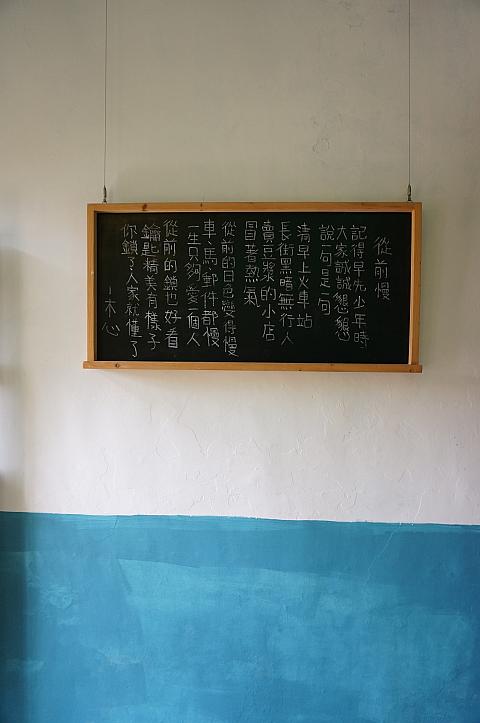 從前慢
記得早先少年時
大家誠誠懇懇
說一句是一句
清早上火車站
長街黑暗無行人
賣豆漿的小店
冒著熱氣
從前的日色變得慢
車、馬、郵件都慢
一生只夠愛一個人
從前的鎖也好看
鑰匙精美有樣子
你鎖了人家就懂了
—木心